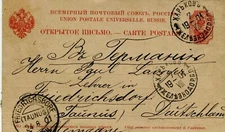 ВСЕМІРНЫЙ ПОЧТОВЫЙ СОЮЗЪ. РОССІЯ.
UNION POSTALE UNIVERSELLE. RUSSIE.
ОТКРЫТОЕ ПИСЬМО. — CARTE POSTALE
Въ Германію
Herrn Paul
Lehrer
in Friedrichsdorf
(Taunus) Deutschland
FRIEDRICHSDORF
(TAUNUS)
ХАРЬКОВЪ